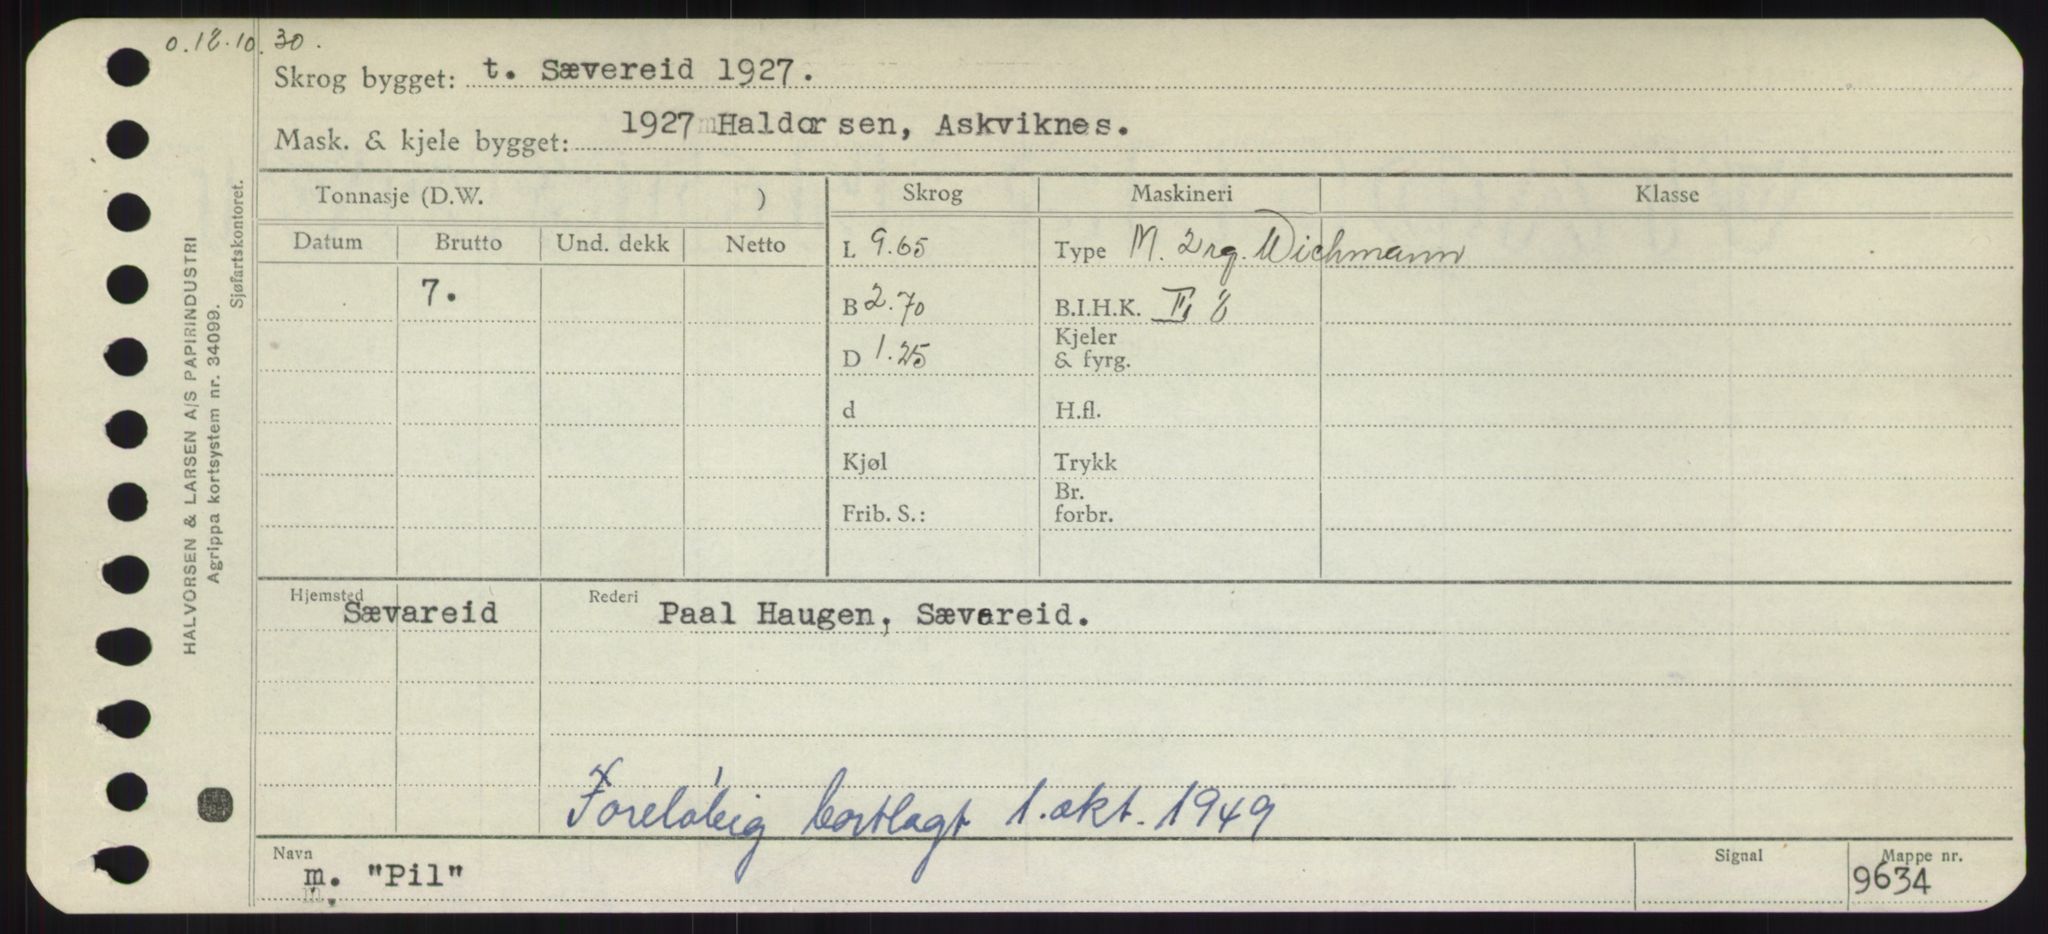 0.18.10.30.
Skrog bygget: t. Sævereid 1927.
Mask. & kjele bygget: 1927 Haldorsen, Askviknes.
Tonnasje (D.W. )
Skrog
Maskineri
Klasse
Datum
Brutto
Und. dekk
Netto
L 9.65
Type M. 2rg. Wichmann
7.
B 2.70
B.I.H.K. II, 8
D 1.25
Kjeler
& fyrg.
d
H.fl.
Kjøl
Trykk
Frib. S.:
Br.
forbr.
Hjemsted
Sævareid
Rederi
Paal Haugen, Sævareid.
Foreløbig bortlagt 1. okt. 1949
Navn
m. "Pil"
Signal
Mappe nr.
9634
HALVORSEN & LARSEN A/S PAPIRINDUSTRI
Agrippa kortsystem nr. 34099.
Sjøfartskontoret.